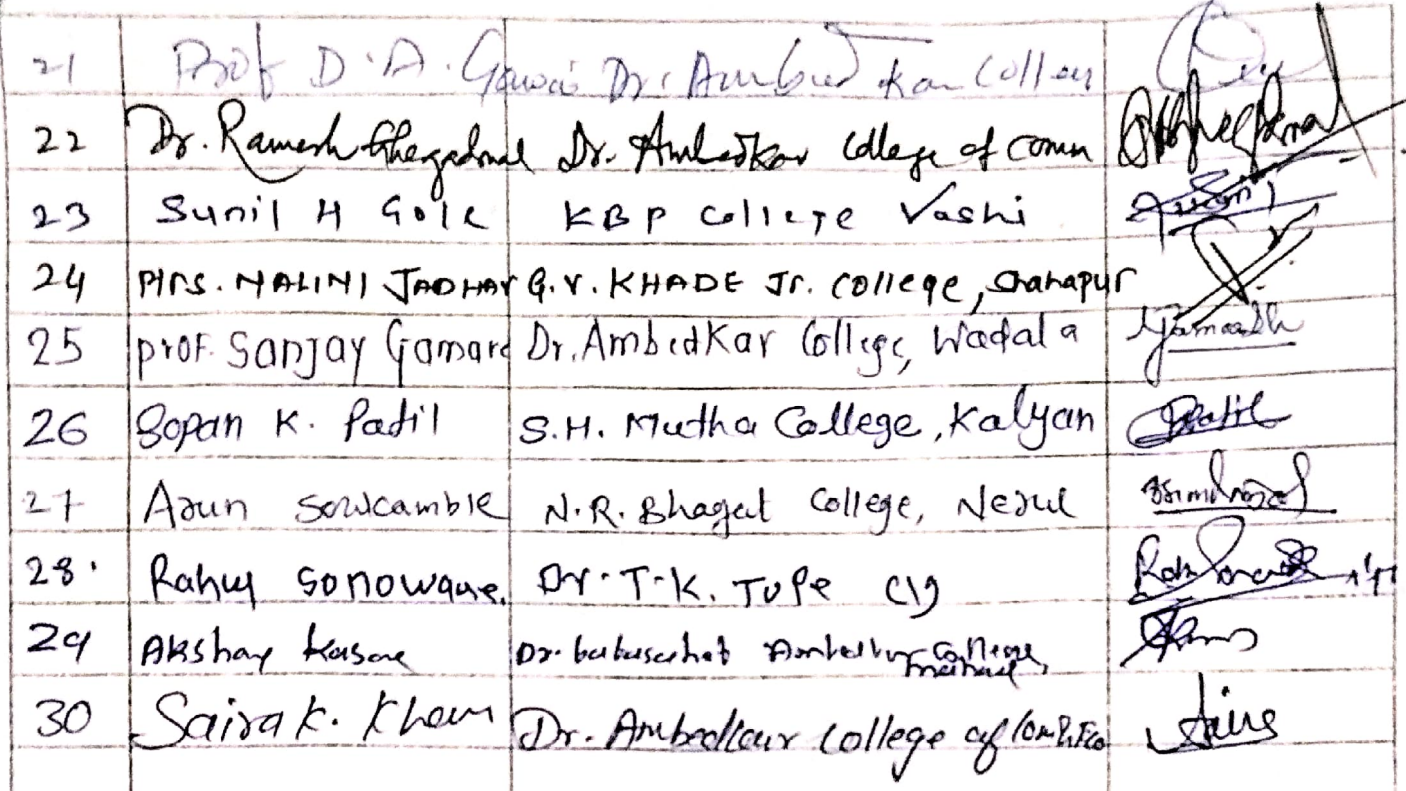 21 Prof D.A. Gawai Dr. Ambedkar College
22 Dr. Ramesh Ghegadmal Dr. Ambedkar College of Comm
23 Sunil H Gole KBP College Vashi
24 Mrs. NALINI JADHAV G.V. KHADE Jr. College, Shahapur
25 Prof. Sanjay Gamare Dr. Ambedkar College, Wadala
26 Sopan K. Patil S.H. Mutha College, Kalyan Patil
27 Arun N.R. Bhagat College, Nerul
28. Rahul Sonowane. Dr. T.K. Tope clg
29 Akshay Kasare Dr. babasaheb Ambedkar College,
30 Saira K. Khan Dr. Ambedkar College of Com & Eco